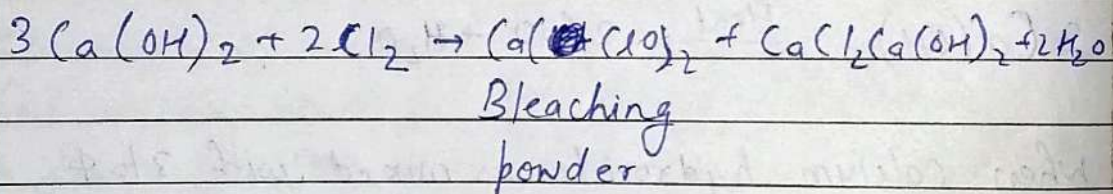 3 Ca(OH)₂ + 2 Cl₂ → Ca(ClO)₂ + CaCl₂Ca(OH)₂ + 2H₂O
Bleaching
powder